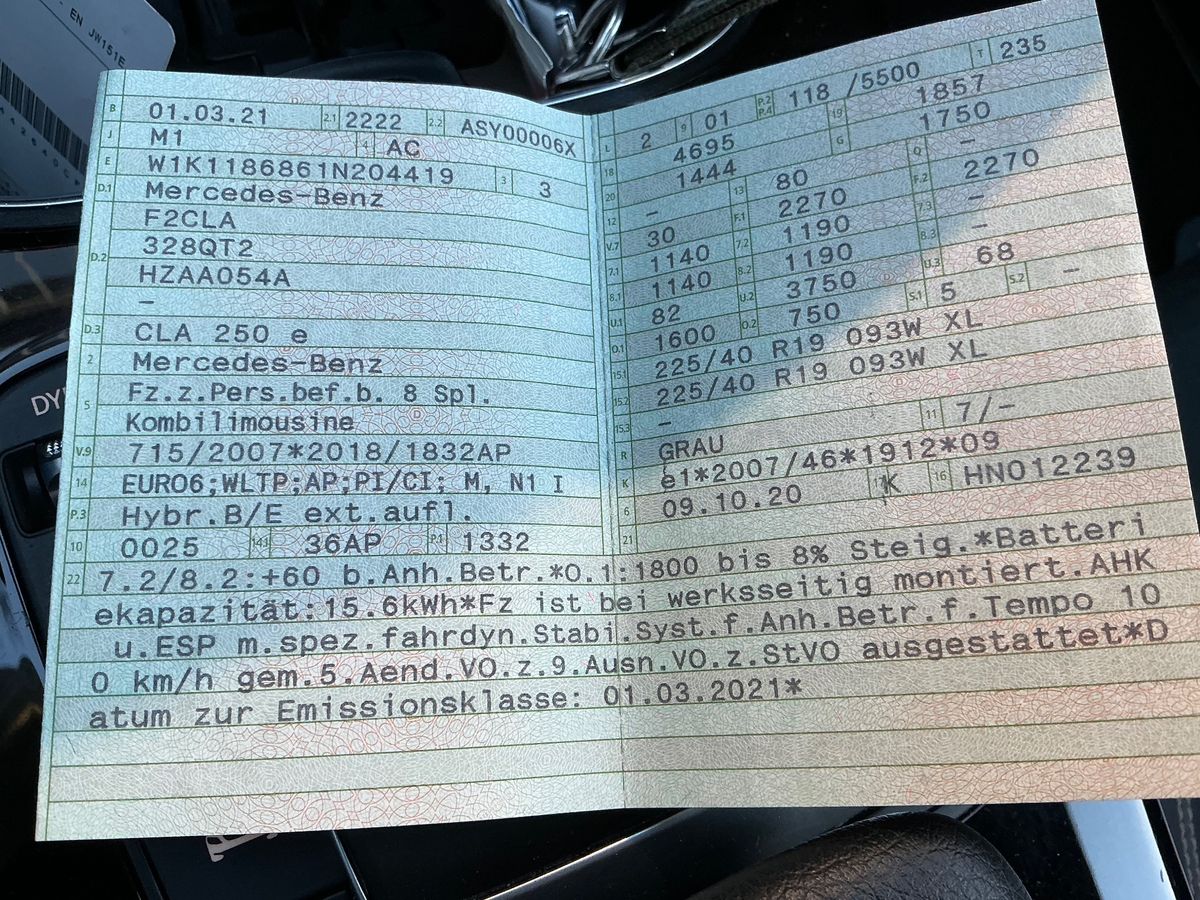 EN JW151E
B 01.03.21 2.1 2222 2.2 ASY00006X
J M1 4 AC
E W1K1186861N204419 3 3
D.1 Mercedes-Benz
F2CLA
D.2 328QT2
HZAA054A
–
D.3 CLA 250 e
2 Mercedes-Benz
5 Fz.z.Pers.bef.b. 8 Spl.
Kombilimousine
V.9 715/2007*2018/1832AP
14 EURO6;WLTP;AP;PI/CI; M, N1 I
P.3 Hybr.B/E ext.aufl.
10 0025 14.1 36AP P.1 1332
L 2 9 01 P.2 P.4 118 /5500 T 235
18 4695 19 1857
20 1444 G 1750
12 – 13 80 Q –
V.7 30 F.1 2270 F.2 2270
7.1 1140 7.2 1190 7.3 –
8.1 1140 8.2 1190 8.3 –
U.1 82 U.2 3750 U.3 68
O.1 1600 O.2 750 S.1 5 S.2 –
15.1 225/40 R19 093W XL
15.2 225/40 R19 093W XL
15.3 –
R GRAU 11 7/–
K e1*2007/46*1912*09
6 09.10.20 17 K 16 HN012239
21
22 7.2/8.2:+60 b.Anh.Betr.*O.1:1800 bis 8% Steig.*Batteri
ekapazität:15.6kWh*Fz ist bei werksseitig montiert.AHK
u.ESP m.spez.fahrdyn.Stabi.Syst.f.Anh.Betr.f.Tempo 10
0 km/h gem.5.Aend.VO.z.9.Ausn.VO.z.StVO ausgestattet*D
atum zur Emissionsklasse: 01.03.2021*
DY